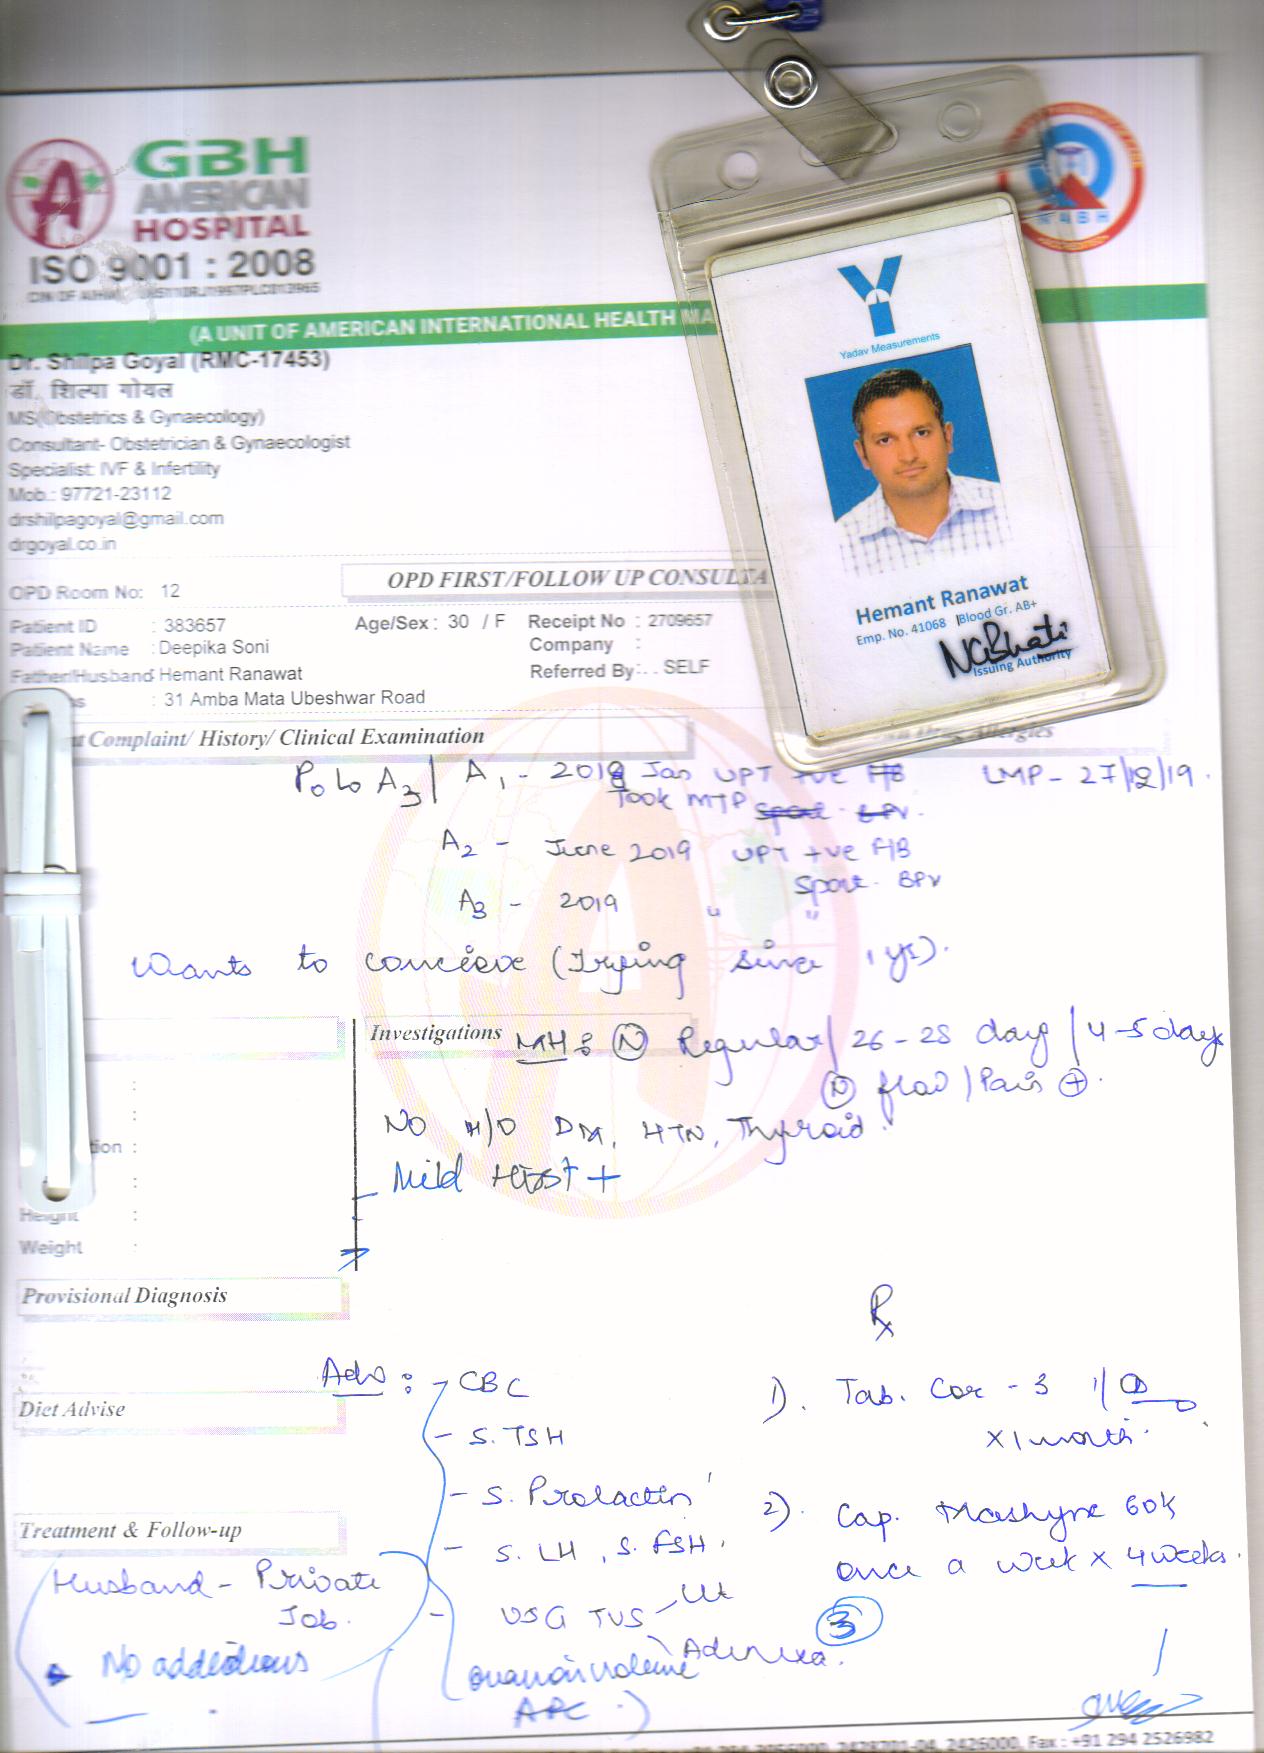 GBH
AMERICAN
HOSPITAL
ISO 9001 : 2008
(A UNIT OF AMERICAN INTERNATIONAL HEALTH MA
NABH
Dr. Shilpa Goyal (RMC-17453)
डॉ. शिल्पा गोयल
MS(Obstetrics & Gynaecology)
Consultant- Obstetrician & Gynaecologist
Specialist: IVF & Infertility
Mob.: 97721-23112
drshilpagoyal@gmail.com
drgoyal.co.in
Yadav Measurements
Hemant Ranawat
Emp. No. 41068 Blood Gr. AB+
NGBhati
Issuing Authority
OPD Room No: 12
OPD FIRST/FOLLOW UP CONSULTA
Patient ID : 383657 Age/Sex : 30 / F Receipt No : 2709657
Patient Name : Deepika Soni Company :
Father/Husband: Hemant Ranawat Referred By: . . SELF
s : 31 Amba Mata Ubeshwar Road
t Complaint/ History/ Clinical Examination Allergies
P0 L0 A3 | A1 - 2018 Jan UPT +ve LMP - 27/12/19.
Took MTP
A2 - June 2019 UPT +ve F/B
Spont. BPV
A3 - 2019 " "
Wants to concieve (Trying since 1 yr).
Investigations MH : N Regular / 26 - 28 day / 4-5 days
N flow / Pain +.
No H/O DM, HTN, Thyroid.
Mild +
tion :
Height :
Weight :
Provisional Diagnosis
Rx
Adv : - CBC
Diet Advise
1). Tab. Cor - 3 1 OD
x 1 month.
- S. TSH
- S. Prolactin
2). Cap. 60K
once a week x 4 weeks.
- S. LH, S. FSH.
Treatment & Follow-up
Husband - Private
Job.
- USG TVS - Ut
Adnexa.
3
No addictions
ovarian volume
AFC )
2428701-04, 2426000, Fax : +91 294 2526982